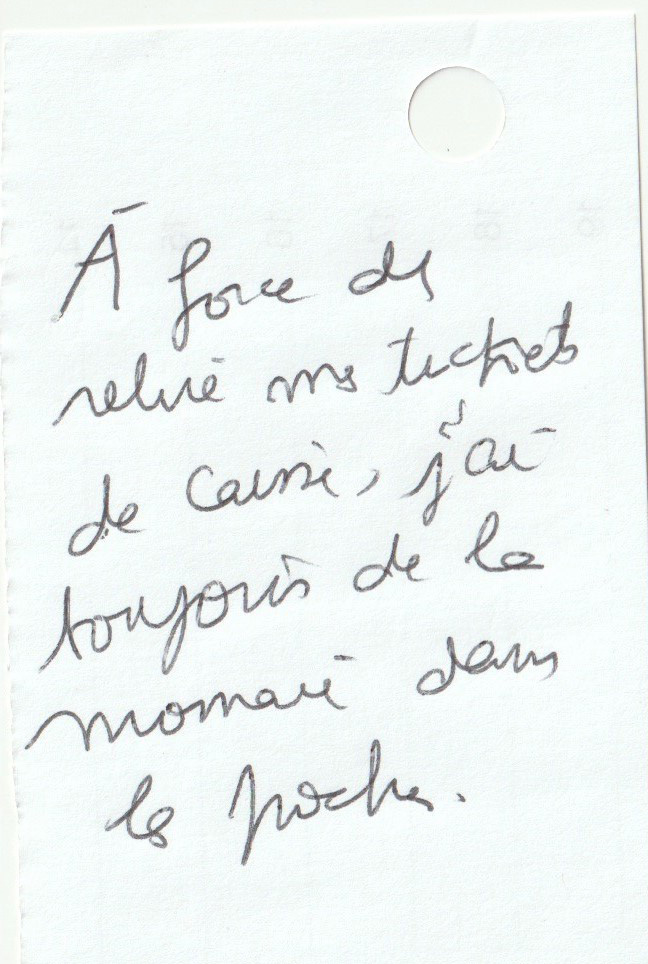 À force de
relire mes tickets
de caisse, j'ai
toujours de la
monnaie dans
les poches.